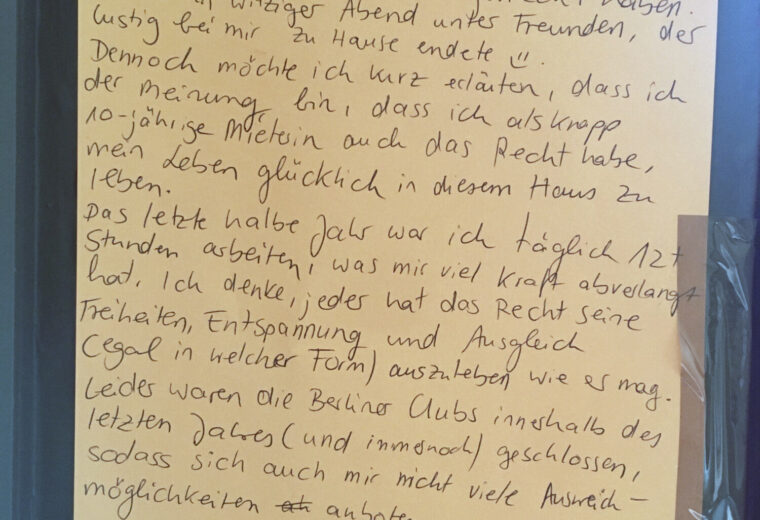 witziger Abend unter Freunden, der
lustig bei mir zu Hause endete ü.
Dennoch möchte ich kurz erläuten, dass ich
der Meinung bin, dass ich als knapp
10-jährige Mieterin auch das Recht habe,
mein Leben glücklich in diesem Haus zu
leben.
Das letzte halbe Jahr war ich täglich 12+
Stunden arbeiten, was mir viel Kraft abverlangt
hat. Ich denke, jeder hat das Recht seine
Freiheiten, Entspannung und Ausgleich
(egal in welcher Form) auszuleben wie er mag.
Leider waren die Berliner Clubs innerhalb des
letzten Jahres (und immernoch) geschlossen,
sodass sich auch mir nicht viele Ausweich-
möglichkeiten anboten